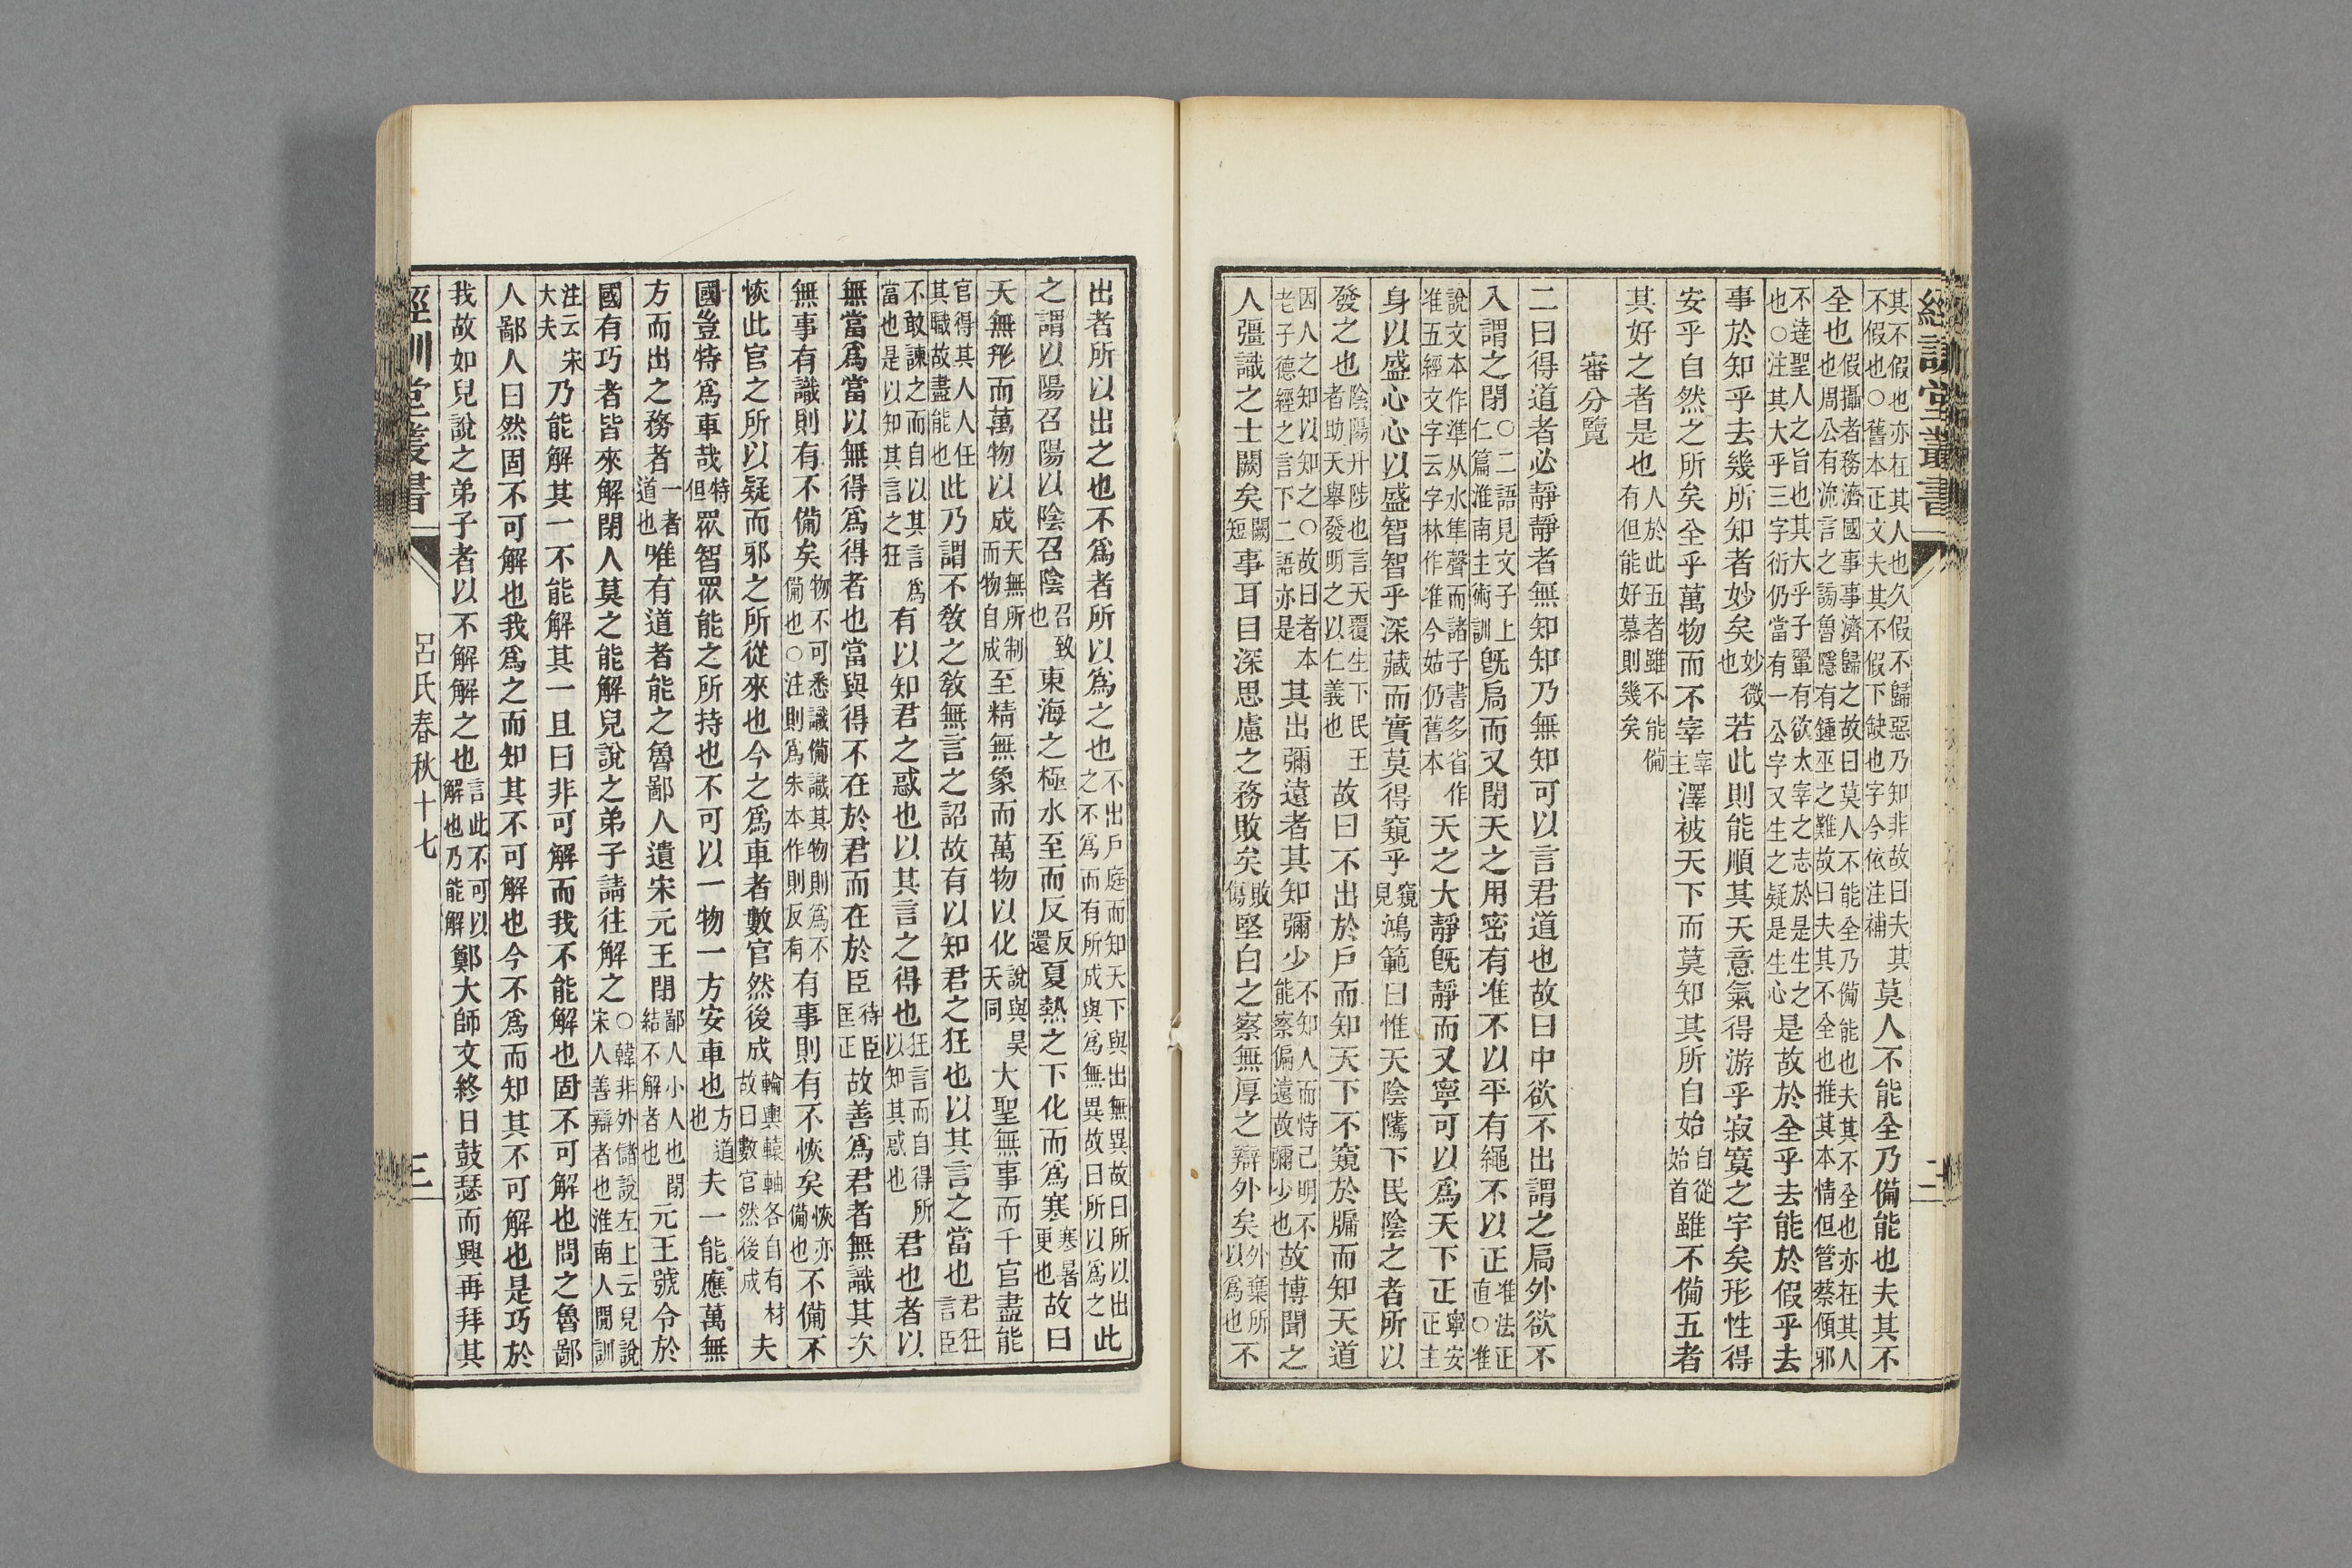 經訓堂叢書 二
其不假也亦在其人也久假不歸惡乃知非故曰夫其不假也○舊本正文夫其不假下缺也字今依注補莫人不能全乃備能也夫其不
全也假攝者務濟國事事濟歸之故曰莫人不能全乃備能也夫其不全也亦在其人也周公有流言之謗魯隱有鍾巫之難故曰夫其不全也推其本情但管蔡傾邪
不達聖人之旨也其大乎子翬有欲太宰之志於是生之也○注其大乎三字衍仍當有一公字又生之疑是生心是故於全乎去能於假乎去
事於知乎去幾所知者妙矣妙微也若此則能順其天意氣得游乎寂寞之宇矣形性得
安乎自然之所矣全乎萬物而不宰宰主澤被天下而莫知其所自始自從始首雖不備五者
其好之者是也人於此五者雖不能備有但能好慕則幾矣
審分覽
二曰得道者必靜靜者無知知乃無知可以言君道也故曰中欲不出謂之扃外欲不
入謂之閉○二語見文子上仁篇淮南主術訓既扃而又閉天之用密有准不以平有繩不以正准法正直○准
說文本作準从水隼聲而諸子書多省作准五經文字云字林作准今姑仍舊本天之大靜既靜而又寧可以爲天下正寧安正主
身以盛心心以盛智智乎深藏而實莫得窺乎窺見鴻範曰惟天陰騭下民陰之者所以
發之也陰陽升陟也言天覆生下民王者助天舉發明之以仁義也故曰不出於戶而知天下不窺於牖而知天道
因人之知以知之○故曰者本老子德經之言下二語亦是其出彌遠者其知彌少不知人而恃己明不能察偏遠故彌少也故博聞之
人彊識之士闕矣闕短事耳目深思慮之務敗矣敗傷堅白之察無厚之辯外矣外棄所以爲也不
出者所以出之也不爲者所以爲之也不出戶庭而知天下與出無異故曰所以出之不爲而有所成與爲無異故曰所以爲之此
之謂以陽召陽以陰召陰召致也東海之極水至而反反還夏熱之下化而爲寒寒暑更也故曰
天無形而萬物以成天無所制而物自成至精無象而萬物以化說與昊天同大聖無事而千官盡能
官得其人人任其職故盡能也此乃謂不敎之敎無言之詔故有以知君之狂也以其言之當也君狂言臣
不敢諫之而自以其言爲當也是以知其言之狂有以知君之惑也以其言之得也狂言而自得所以知其惑也君也者以
無當爲當以無得爲得者也當與得不在於君而在於臣待臣匡正故善爲君者無識其次
無事有識則有不備矣物不可悉識備識其物則爲不備也○注則爲朱本作則反有有事則有不恢矣恢亦備也不備不
恢此官之所以疑而邪之所從來也今之爲車者數官然後成輪輿轅軸各自有材故曰數官然後成夫
國豈特爲車哉特但眾智眾能之所持也不可以一物一方安車也方道也夫一能應萬無
方而出之務者一者道也唯有道者能之魯鄙人遺宋元王閉鄙人小人也閉結不解者也元王號令於
國有巧者皆來解閉人莫之能解兒說之弟子請往解之○韓非外儲說左上云兒說宋人善辯者也淮南人閒訓
注云宋大夫乃能解其一不能解其一且曰非可解而我不能解也固不可解也問之魯鄙
人鄙人曰然固不可解也我爲之而知其不可解也今不爲而知其不可解也是巧於
我故如兒說之弟子者以不解解之也言此不可以解也乃能解鄭大師文終日鼓瑟而興再拜其
經訓堂叢書 呂氏春秋十七 三